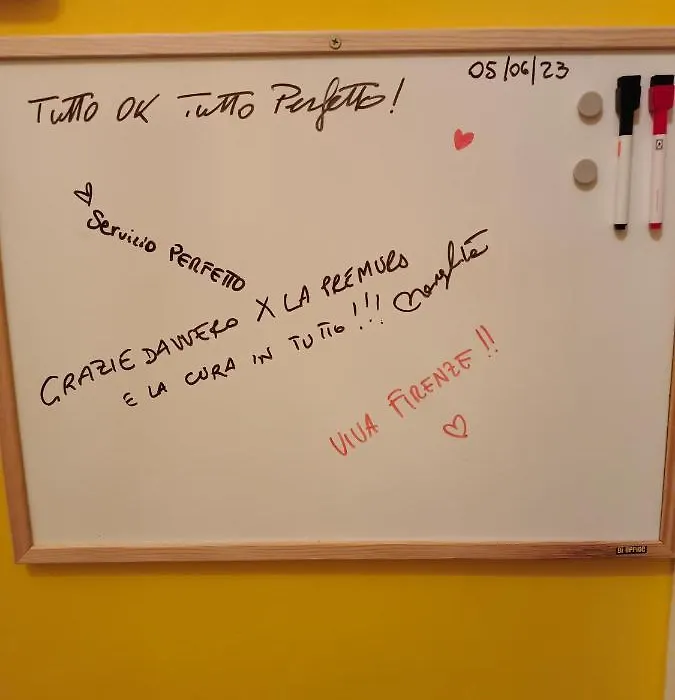 05/06/23
TUTTO OK TUTTO Perfetto!
Servicio PERFETTO
GRAZIE DAVVERO X LA PREMURA
E LA CURA IN TUTTO!!!
VIVA FIRENZE!!
Bi-OFFICE